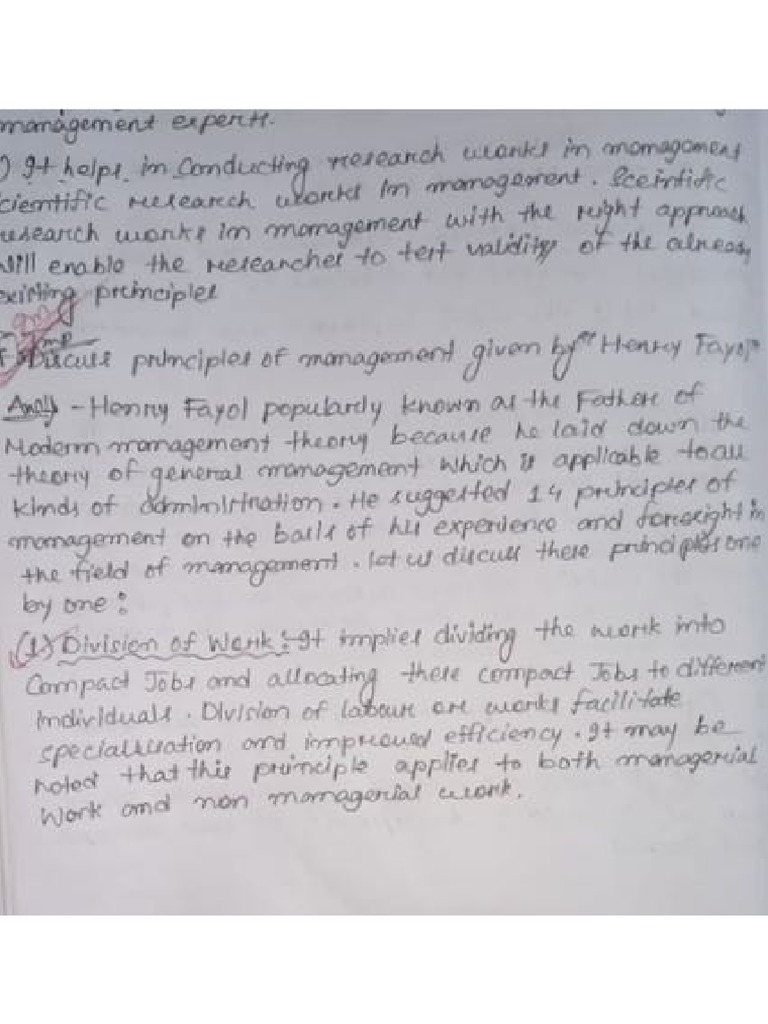 management experts.
) It helps in Conducting research works in management
cientific research works in management. Sceintific
research works in management with the right approach
will enable the researcher to test validity of the already
existing principles
Imp
Discuss principles of management given by "Henry Fayol"
Ans) - Henry Fayol popularly known as the Father of
Modern management theory because he laid down the
theory of general management which is applicable to all
kinds of administration. He suggested 14 principles of
management on the basis of his experience and foresight in
the field of management. let us discuss these principles one
by one :
(1) Division of Work :- It implies dividing the work into
Compact Jobs and allocating these compact Jobs to different
individuals. Division of labour or works facilitate
specialisation and improved efficiency. It may be
noted that this principle applies to both managerial
Work and non managerial work.